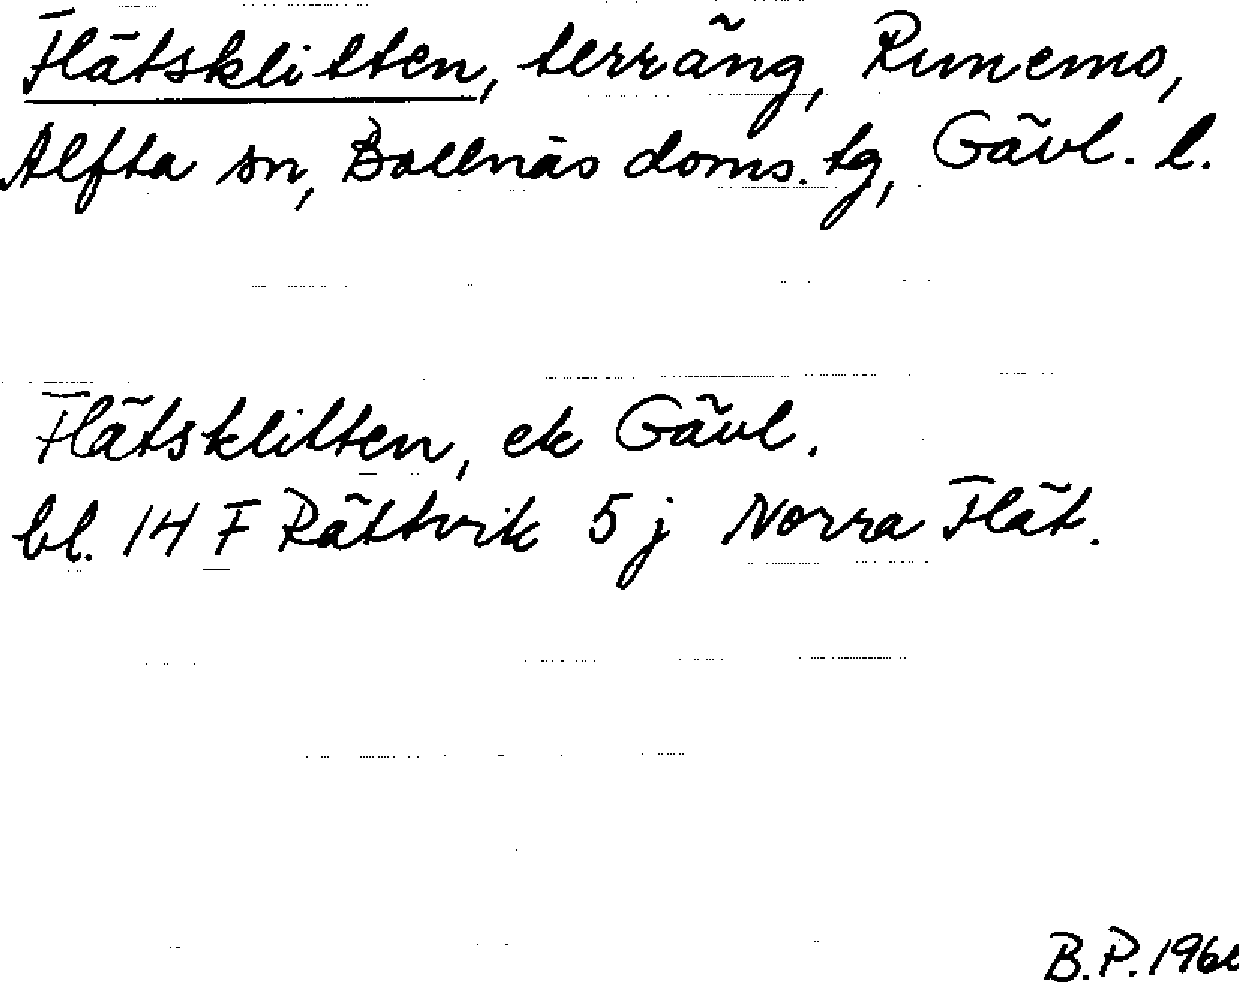 Flätsklitten, terräng, Runemo,
Alfta sn, Bollnäs doms. tg, Gävl. l.
Flätsklitten, ek Gävl.
bl. 14 F Rättvik 5 j Norra Flät.
B.P.